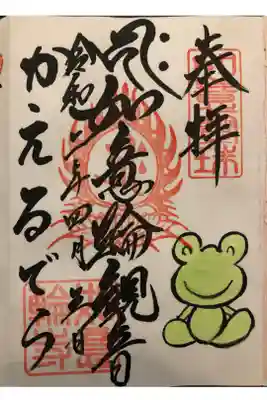 奉拝
如意輪観音
令和年四月日
かえるでら